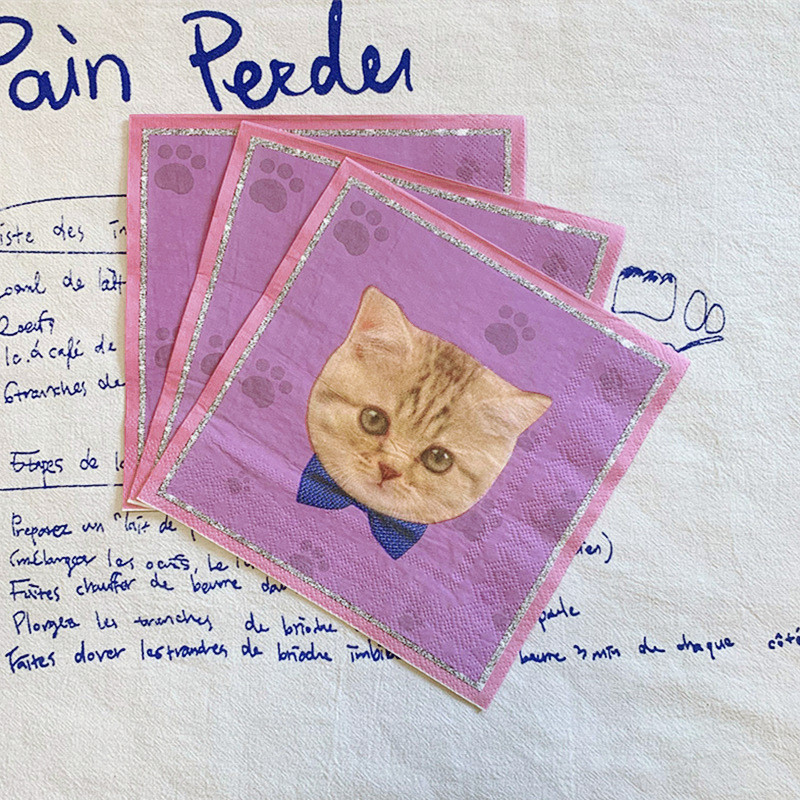 Pain Perdu
iste des in
2 oeufs
1 c. à café de
6 tranches de
Etapes de la
Preparez un "lait de ies)
(mélanger les oeufs, le
Faites chauffer de beurre da
Plongez les tranches de brioche
Faites dorer les tranches de brioche imbi beurre 3 min de chaque côté